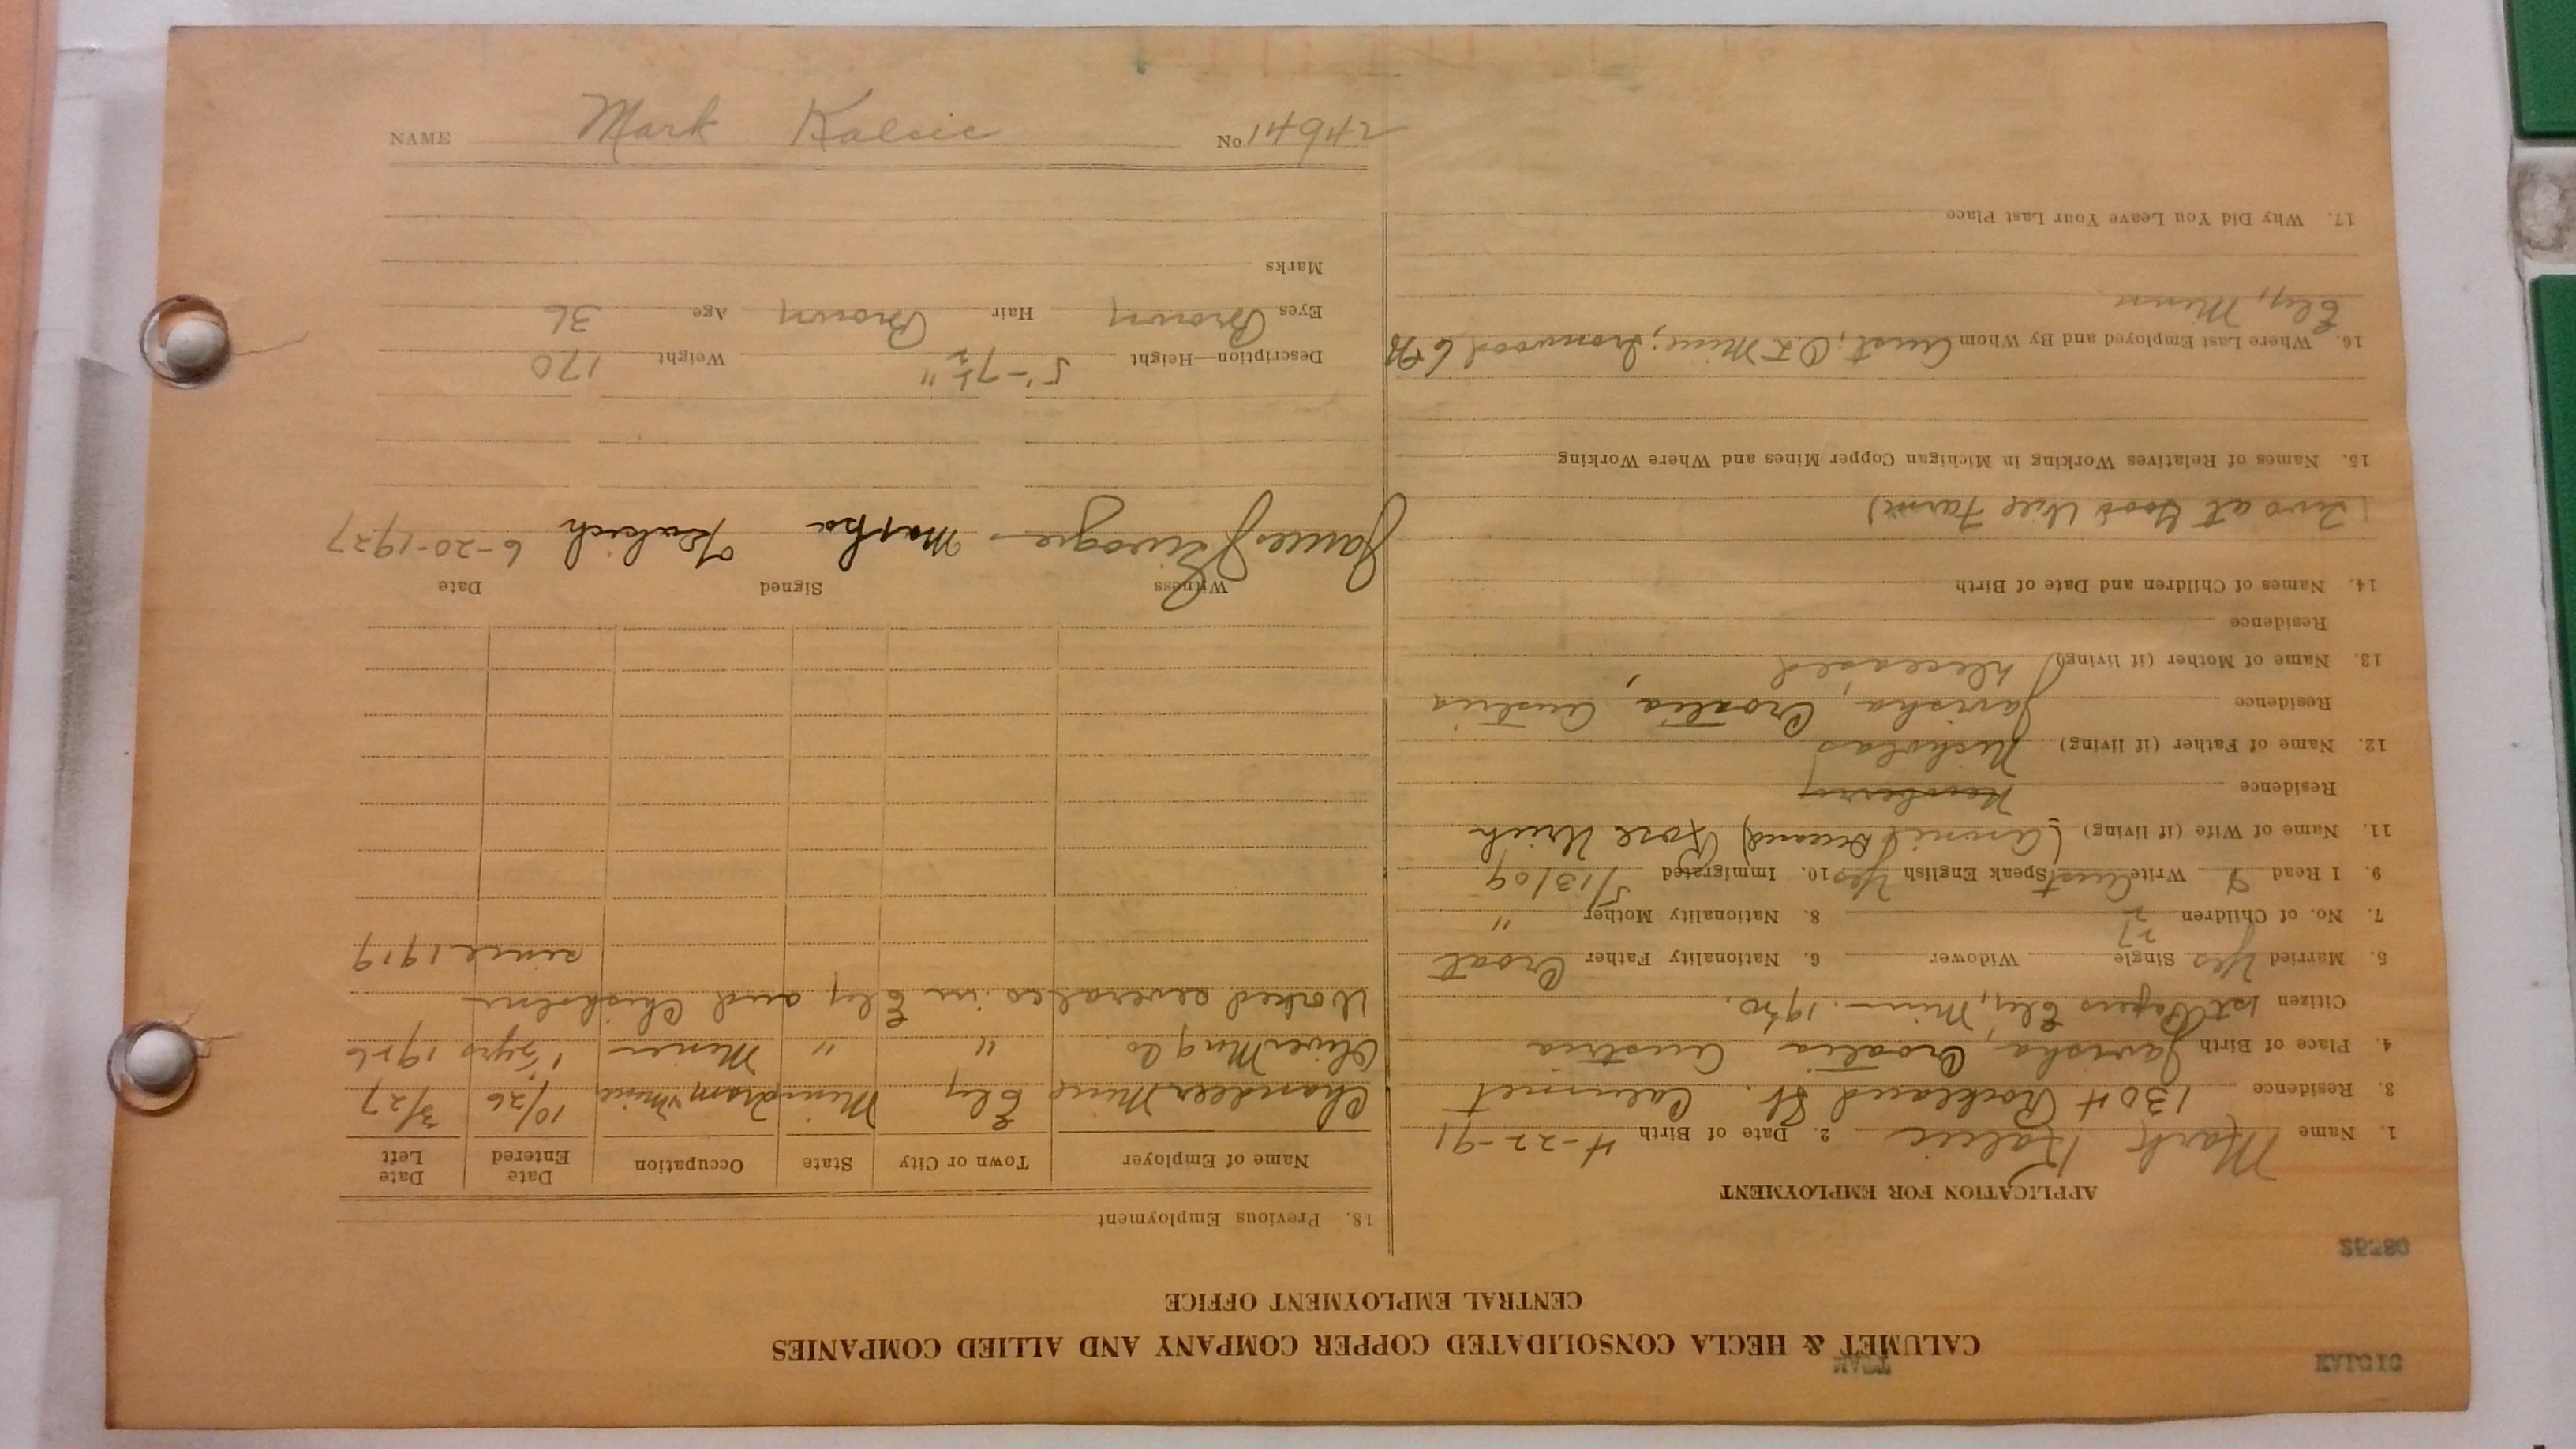 KALCIC
IVAN
CALUMET & HECLA CONSOLIDATED COPPER COMPANY AND ALLIED COMPANIES
CENTRAL EMPLOYMENT OFFICE
APPLICATION FOR EMPLOYMENT
1. Name Mark Kalcic 2. Date of Birth 4-22-91
3. Residence 1304 Rockland St. Calumet
4. Place of Birth Javisha, Croatia Austria
Citizen 1st Papers Ely, Minn.
5. Married Yes Single Widower 6. Nationality Father Croat
7. No. of Children 2 8. Nationality Mother "
9. I Read & Write Aust Speak English Yes 10. Immigrated 5/13/09
11. Name of Wife (if living) Rose
Residence
12. Name of Father (if living) Nicholas
Residence Javisha, Croatia, Austria
13. Name of Mother (if living) Deceased
Residence
14. Names of Children and Date of Birth
Two at Good Will Farm)
15. Names of Relatives Working in Michigan Copper Mines and Where Working
16. Where Last Employed and By Whom Aust, Mine, Ironwood
Ely, Minn
17. Why Did You Leave Your Last Place
18. Previous Employment
Name of Employer Town or City State Occupation Date Entered Date Left
Chandler Mine Ely Minn 10/26 3/27
Oliver Ming Co " " Miner 1½ yrs 1926
Worked several cos in Ely and Chisholm
since 1919
Witness Signed Date
James 6-20-1927
Description—Height 5'-7½" Weight 170
Eyes Brown Hair Brown Age 36
Marks
NAME Mark Kalcic No 14942